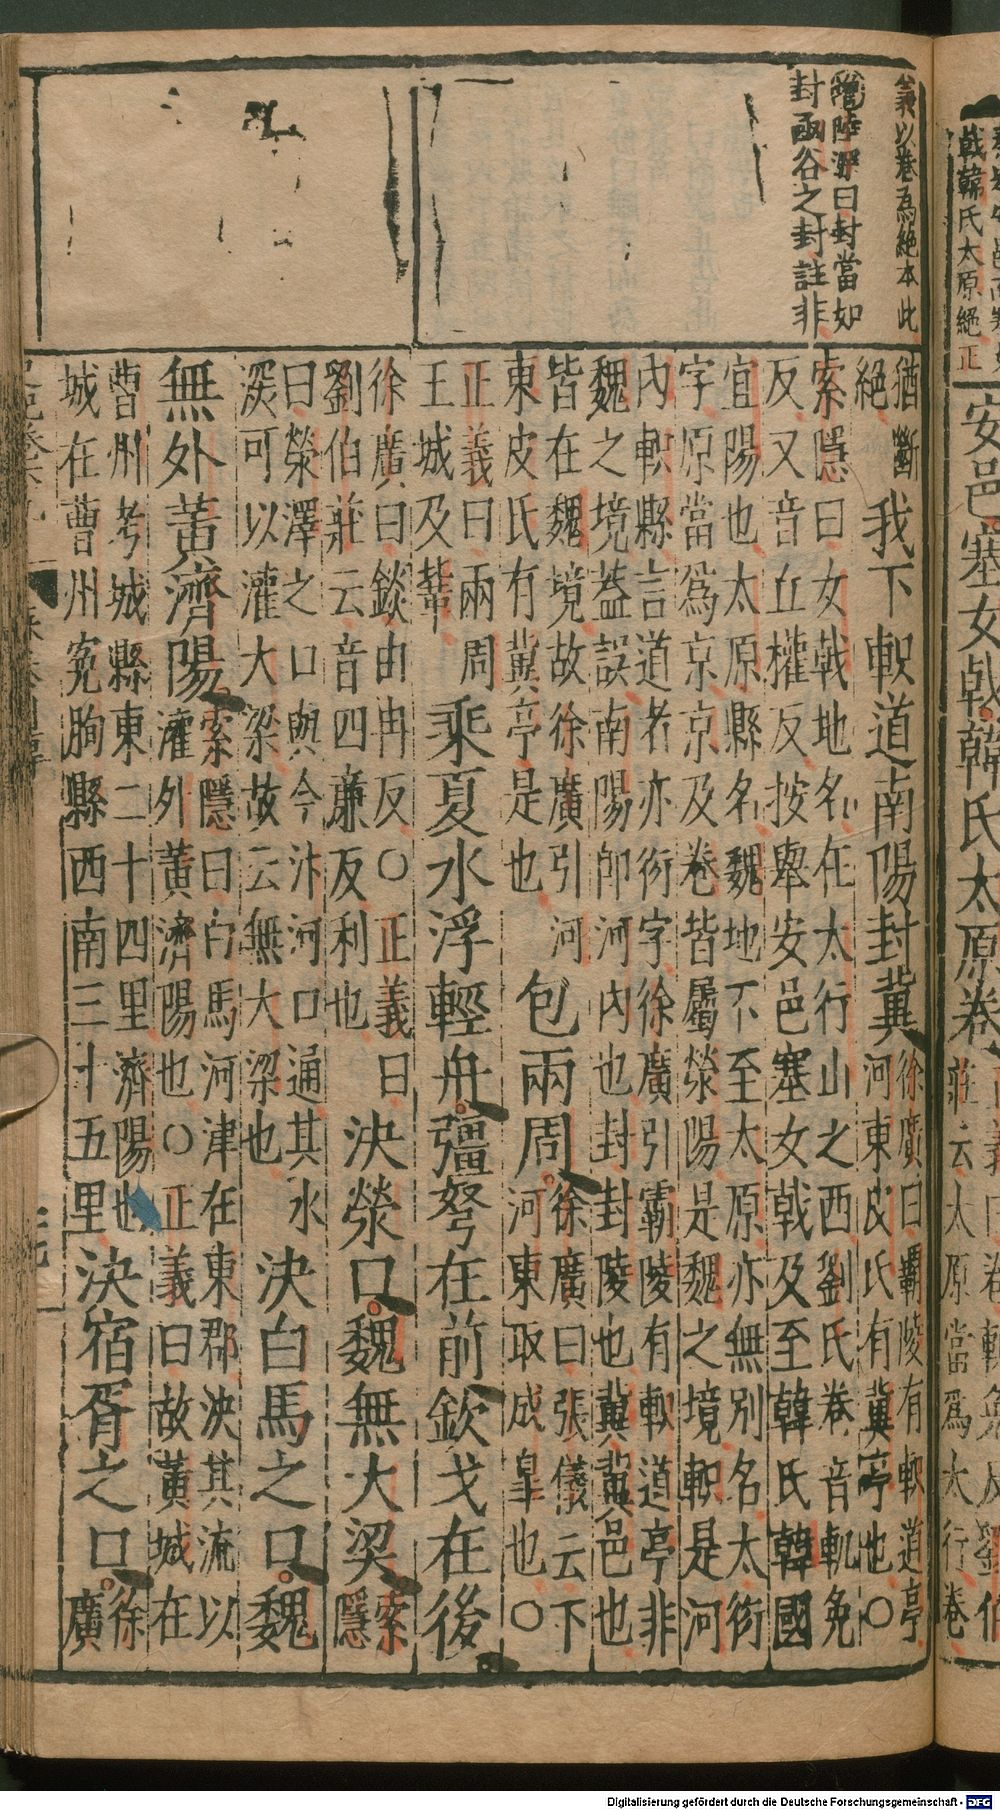 戟韓氏太原絕正
安邑塞女戟韓氏太原卷
莊云太原當爲太行卷
義以卷爲絕本此
增陸深曰封當如
封函谷之封註非
猶斷
絕
我下軹道南陽封冀
徐廣曰霸陵有軹道亭
河東皮氏有冀亭也○
索隱曰女戟地名在太行山之西劉氏卷音軌免
反又音丘權反按舉安邑塞女戟及至韓氏韓國
宜陽也太原縣名魏地不至太原亦無別名太衍
字原當爲京京及卷皆屬滎陽是魏之境軹是河
內軹縣言道者亦衍字徐廣引霸陵有軹道亭非
魏之境蓋誤南陽卽河內也封封陵也冀冀邑也
皆在魏境故徐廣引河
東皮氏有冀亭是也
包兩周
徐廣曰張儀云下
河東取成皐也○
正義曰兩周
王城及鞏
乘夏水浮輕舟彊弩在前欽戈在後
徐廣曰錟由冉反○正義曰
劉伯莊云音四廉反利也
決滎口魏無大梁
索
隱
曰滎澤之口與今汴河口通其水
深可以灌大梁故云無大梁也
決白馬之口魏
無外黃濟陽
索隱曰白馬河津在東郡決其流以
灌外黃濟陽也○正義曰故黃城在
曹州考城縣東二十四里濟陽也
城在曹州寃朐縣西南三十五里
決宿胥之口
徐
廣
Digitalisierung gefördert durch die Deutsche Forschungsgemeinschaft - DFG